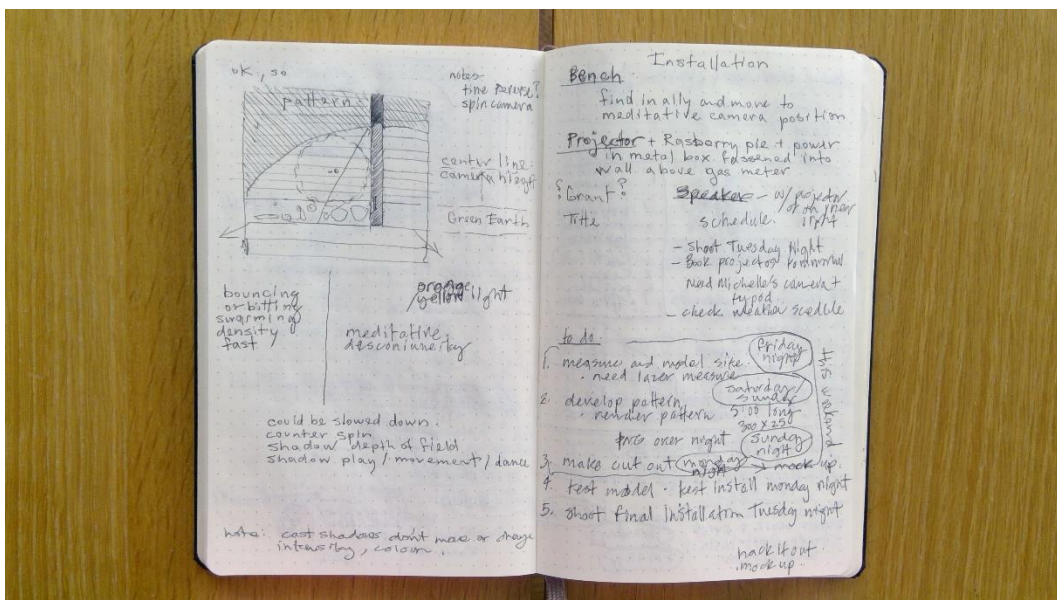 ok, so
notes-
time reverse?
spin camera
pattern
center line:
camera hieght
Green Earth
bouncing
orbitting
swarming
density
fast
orange
yellow light
meditative
desconiuneity
could be slowed down.
counter spin
shadow depth of field
shadow play / movement / dance
note: cast shadows don't move or change
intensity, colour.
Installation
Bench
find in ally and move to
meditative camera position
Projector + Rasberry pie + power
in metal box fassened into
wall above gas meter
? Grant ?
Title
Speaker - w/ projector
or
schedule.
- Shoot Tuesday Night
- Book projector
need Michelle's camera +
typod
- check weather scedule
to do:
1. measure and model site.
· need lazer measure
friday
night
2. develop pattern
· render pattern
saturday/
sunday
5:00 long
300 x 250
over night
sunday
night
3. make cut out monday
night → mock up.
this weekend
4. test model · test install monday night
5. shoot final installation Tuesday night
hack it out
mock up.